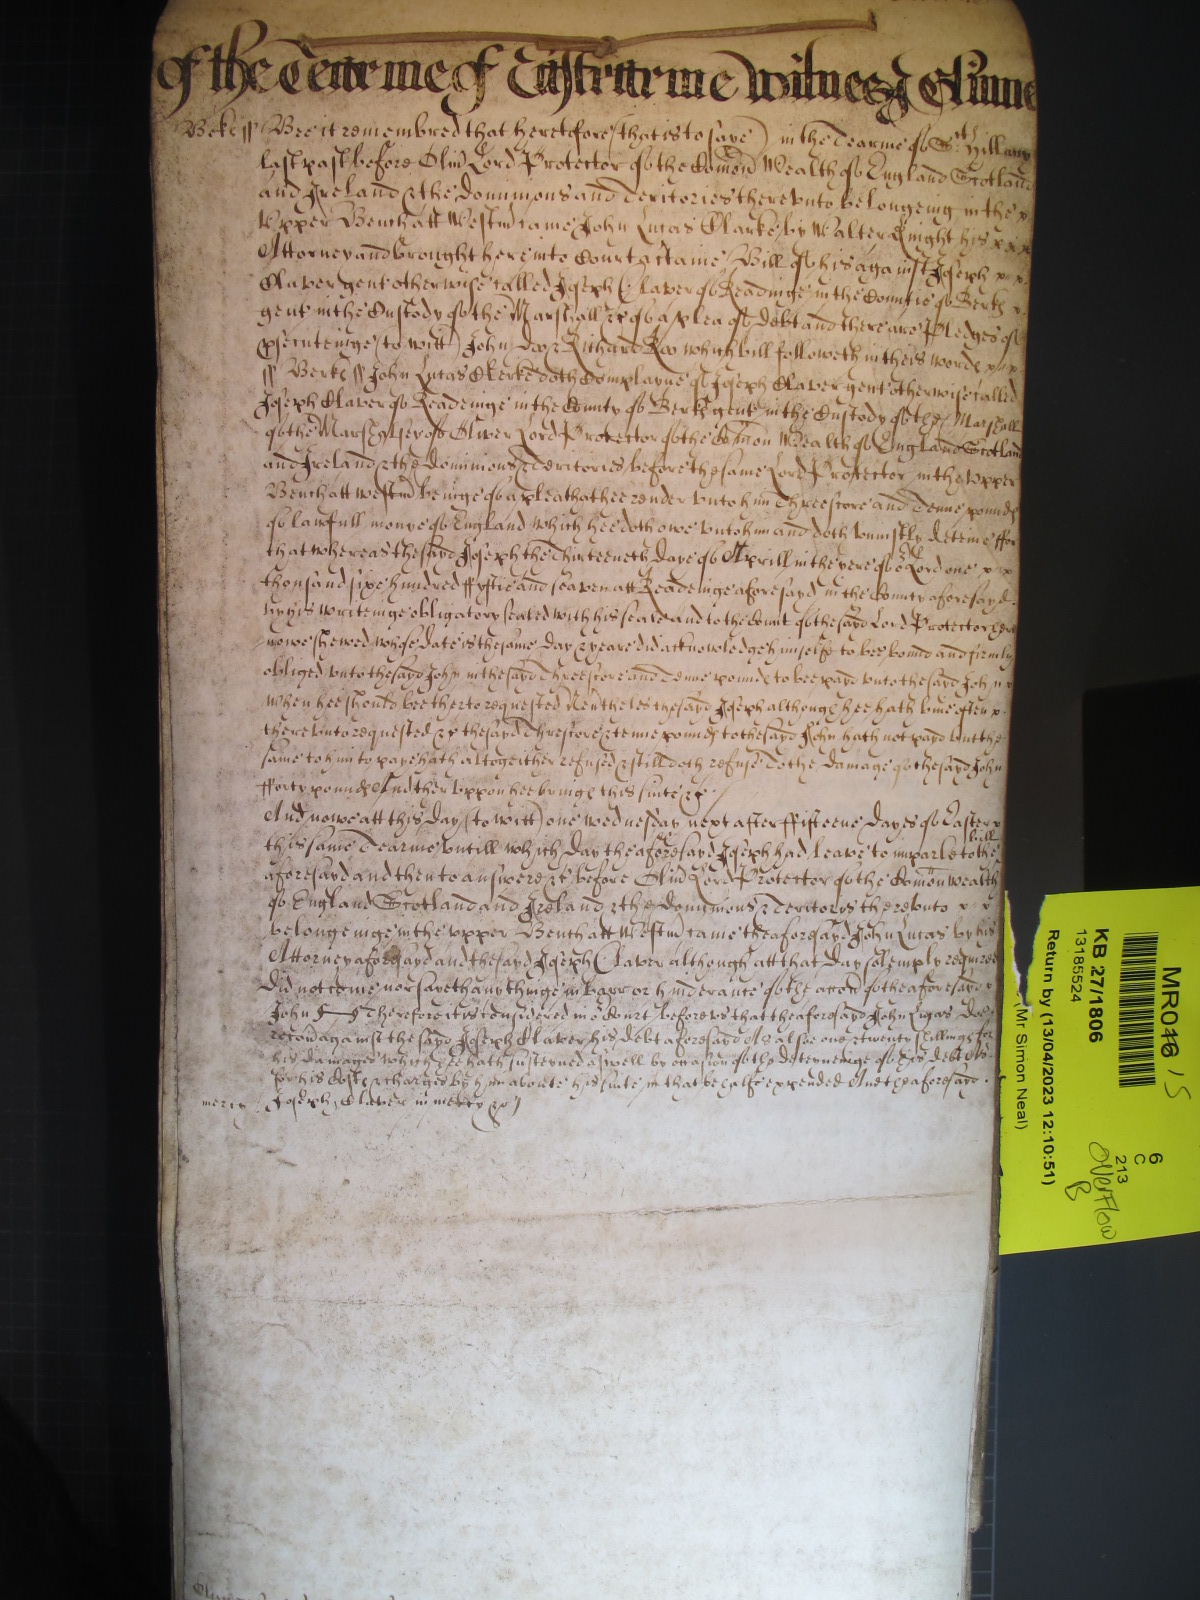 of the Tearme of Easter Witnes
Berks ss Bee it remembred that heretofore (that is to saye) in the Tearme of St. Hillary
last past before Oliver Lord Protector of the Comon Wealth of England Scotland
and Ireland & the Dominions and Territories thereunto belongeing in the
Upper Bench att Westmr came John Lucas Clarke by Walter Knight his
Attorney and brought here into Court a certaine Bill of his against Joseph
Claver gent otherwise called Joseph Claver of Readinge in the Countie of Berks
gent in the Custody of the Marshall &c of a plea of debt and there are Pledges of
psecuteinge (to witt) John Doe & Richard Roo which bill followeth in theis words
ss Berks ss John Lucas Clerke doth Complayne of Joseph Claver gent otherwise called
Joseph Claver of Readeinge in the County of Berks gent in the Custody of the Marshall
of the Marshalsey of Oliver Lord Protector of the Comon Wealth of England Scotland
and Ireland & the Dominions & Territories before the same Lord Protector in the Upper
Bench att Westmr beinge of a plea that hee render unto him Threescore and Tenne pounds
of lawfull money of England which hee doth owe unto him and doth uniustly deteine ffor
that whereas the sayd Joseph the Thirteeneth Daye of Aprill in the yere of or Lord one
thousand sixe hundred ffyftie and seaven att Readeinge aforesayd in the County aforesayd
by his writeinge obligatory sealed with his seale and to the Court of the sayd Lord Protector here
nowe shewed whose date is the same day & yeare did acknowledge himselfe to bee bound and firmly
obliged unto the sayd John in the sayd Threescore and Tenne pounds to bee payd unto the sayd John
when hee should bee therto requested Neutheles the sayd Joseph although hee hath bine often
thereunto requested &c the sayd Threscore & tenne pounds to the sayd John hath not payd but the
same to him to paye hath altogeither refused & still doth refuse To the damage of the sayd John
fforty pounds And therupon hee bringes this suite &c
And nowe att this day (to witt) one Wednesday next after ffifteene dayes of Easter
this same Tearme untill which day the aforesayd Joseph had leave to imparle to the bill
aforesayd and then to answere &c before Oliver Lord Protector of the Comon wealth
of England Scotland and Ireland & the Dominions & Territorys thereunto
belongeinge in the upper Bench att Westmr came the aforesayd John Lucas by his
Attorney aforesayd and the sayd Joseph Claver although att that day solemply required
did not come nor sayeth any thinge in barr or hinderance of the accon of the aforesayd
John Therefore itt is considered in or Court before us that the aforesayd John Lucas doe
recover against the sayd Joseph Claver his debt aforesayd As also one & twenty shillings for
his damages which hee hath susteyned aswell by occasion of the deteyneinge of his debt as
for his Costs & charges by him aboute his suite in that behalfe expended And the aforesayd
mercy Joseph Claver in mercy &c
MR046 15
KB 27/1806
13185524
Return by (13/04/2023 12:10:51)
(Mr Simon Neal)
6
C
213
overflow
B